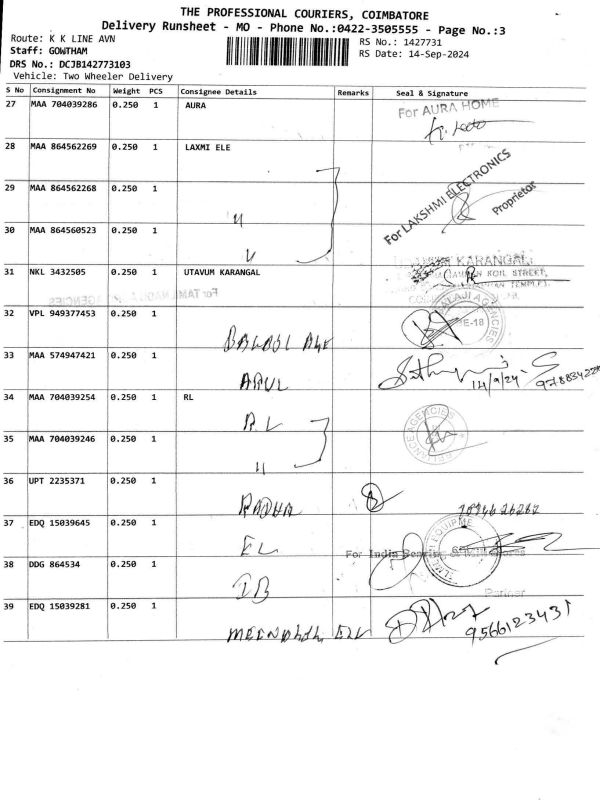 THE PROFESSIONAL COURIERS, COIMBATORE
Delivery Runsheet - MO - Phone No.:0422-3505555 - Page No.:3
Route: K K LINE AVN
RS No.: 1427731
Staff: GOWTHAM
RS Date: 14-Sep-2024
DRS No.: DCJB142773103
Vehicle: Two Wheeler Delivery
S No Consignment No Weight PCS Consignee Details Remarks Seal & Signature
27 MAA 704039286 0.250 1 AURA
For AURA HOME
28 MAA 864562269 0.250 1 LAXMI ELE
For LAKSHMI ELECTRONICS
Proprietor
29 MAA 864562268 0.250 1
30 MAA 864560523 0.250 1
31 NKL 3432505 0.250 1 UTAVUM KARANGAL
KARANGAL
KOIL STREET,
32 VPL 949377453 0.250 1
BALAJI AGENCIES
33 MAA 574947421 0.250 1
ARUL
14/9/24
34 MAA 704039254 0.250 1 RL
RL
AGENCIES
35 MAA 704039246 0.250 1
36 UPT 2235371 0.250 1
RADHA
37 EDQ 15039645 0.250 1
EL
For India Bearing &
38 DDG 864534 0.250 1
IB
Partner
39 EDQ 15039281 0.250 1
9566123431